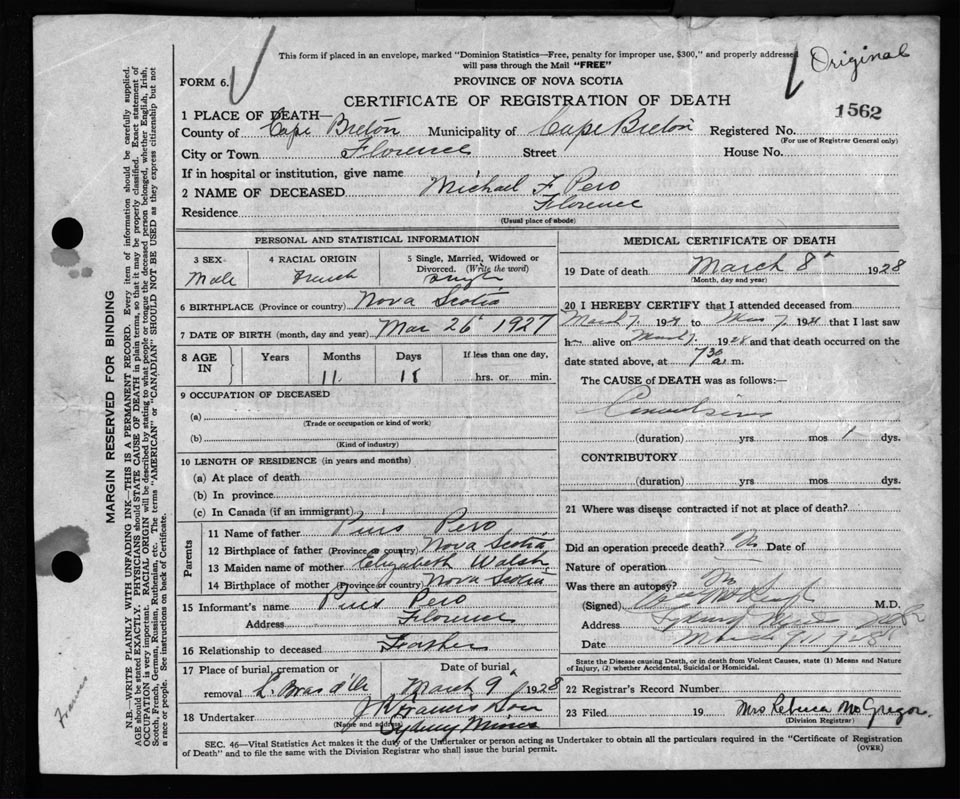 This form if placed in an envelope, marked "Dominion Statistics—Free, penalty for improper use, $300," and properly addressed
will pass through the Mail "FREE"
Original
FORM 6.
PROVINCE OF NOVA SCOTIA
CERTIFICATE OF REGISTRATION OF DEATH
1562
1 PLACE OF DEATH—
County of Cape Breton Municipality of Cape Breton Registered No.
(For use of Registrar General only)
City or Town Florence Street House No.
If in hospital or institution, give name
2 NAME OF DECEASED Michael F. Pero
Residence Florence
(Usual place of abode)
PERSONAL AND STATISTICAL INFORMATION
3 SEX 4 RACIAL ORIGIN 5 Single, Married, Widowed or
Divorced. (Write the word)
Male French Single
6 BIRTHPLACE (Province or country) Nova Scotia
7 DATE OF BIRTH (month, day and year) Mar 26 1927
8 AGE IN Years Months Days If less than one day,
11 hrs. or min.
9 OCCUPATION OF DECEASED
(a)
(Trade or occupation or kind of work)
(b)
(Kind of industry)
10 LENGTH OF RESIDENCE (in years and months)
(a) At place of death
(b) In province
(c) In Canada (if an immigrant)
Parents
11 Name of father Pius Pero
12 Birthplace of father (Province or country) Nova Scotia
13 Maiden name of mother Elizabeth Walsh
14 Birthplace of mother (Province or country) Nova Scotia
15 Informant's name Pius Pero
Address Florence
16 Relationship to deceased Father
17 Place of burial, cremation or Date of burial
removal L. Bras d'Or March 9th 1928
18 Undertaker J R Francis Son
(Name and address)
Sydney Mines
MEDICAL CERTIFICATE OF DEATH
19 Date of death March 8th 1928
(Month, day and year)
20 I HEREBY CERTIFY that I attended deceased from
March 7, 19 to Mar 7, 19 that I last saw
h alive on March 7, 1928 and that death occurred on the
date stated above, at 7 30 a. m.
The CAUSE of DEATH was as follows:—
Convulsions
(duration) yrs mos 1 dys.
CONTRIBUTORY
(duration) yrs. mos dys.
21 Where was disease contracted if not at place of death?
Did an operation precede death? No Date of
Nature of operation
Was there an autopsy? No
(Signed) M.D.
Address Sydney Mines
Date March 9, 1928
State the Disease causing Death, or in death from Violent Causes, state (1) Means and Nature
of Injury, (2) whether Accidental, Suicidal or Homicidal.
22 Registrar's Record Number
23 Filed 19 Mrs Rebecca McGregor.
(Division Registrar)
SEC. 46—Vital Statistics Act makes it the duty of the Undertaker or person acting as Undertaker to obtain all the particulars required in the "Certificate of Registration
of Death" and to file the same with the Division Registrar who shall issue the burial permit.
(OVER)
MARGIN RESERVED FOR BINDING
N.B.—WRITE PLAINLY WITH UNFADING INK—THIS IS A PERMANENT RECORD. Every item of information should be carefully supplied.
AGE should be stated EXACTLY. PHYSICIANS should STATE CAUSE OF DEATH in plain terms, so that it may be properly classified. Exact statement of
OCCUPATION is very important. RACIAL ORIGIN will be described by stating to what people or tongue the deceased person belonged, whether English, Irish,
Scotch, French, German, Russian, Ruthenian, etc. The terms "AMERICAN" or "CANADIAN" SHOULD NOT BE USED as they express citizenship but not
a race or people. See instructions on back of Certificate.